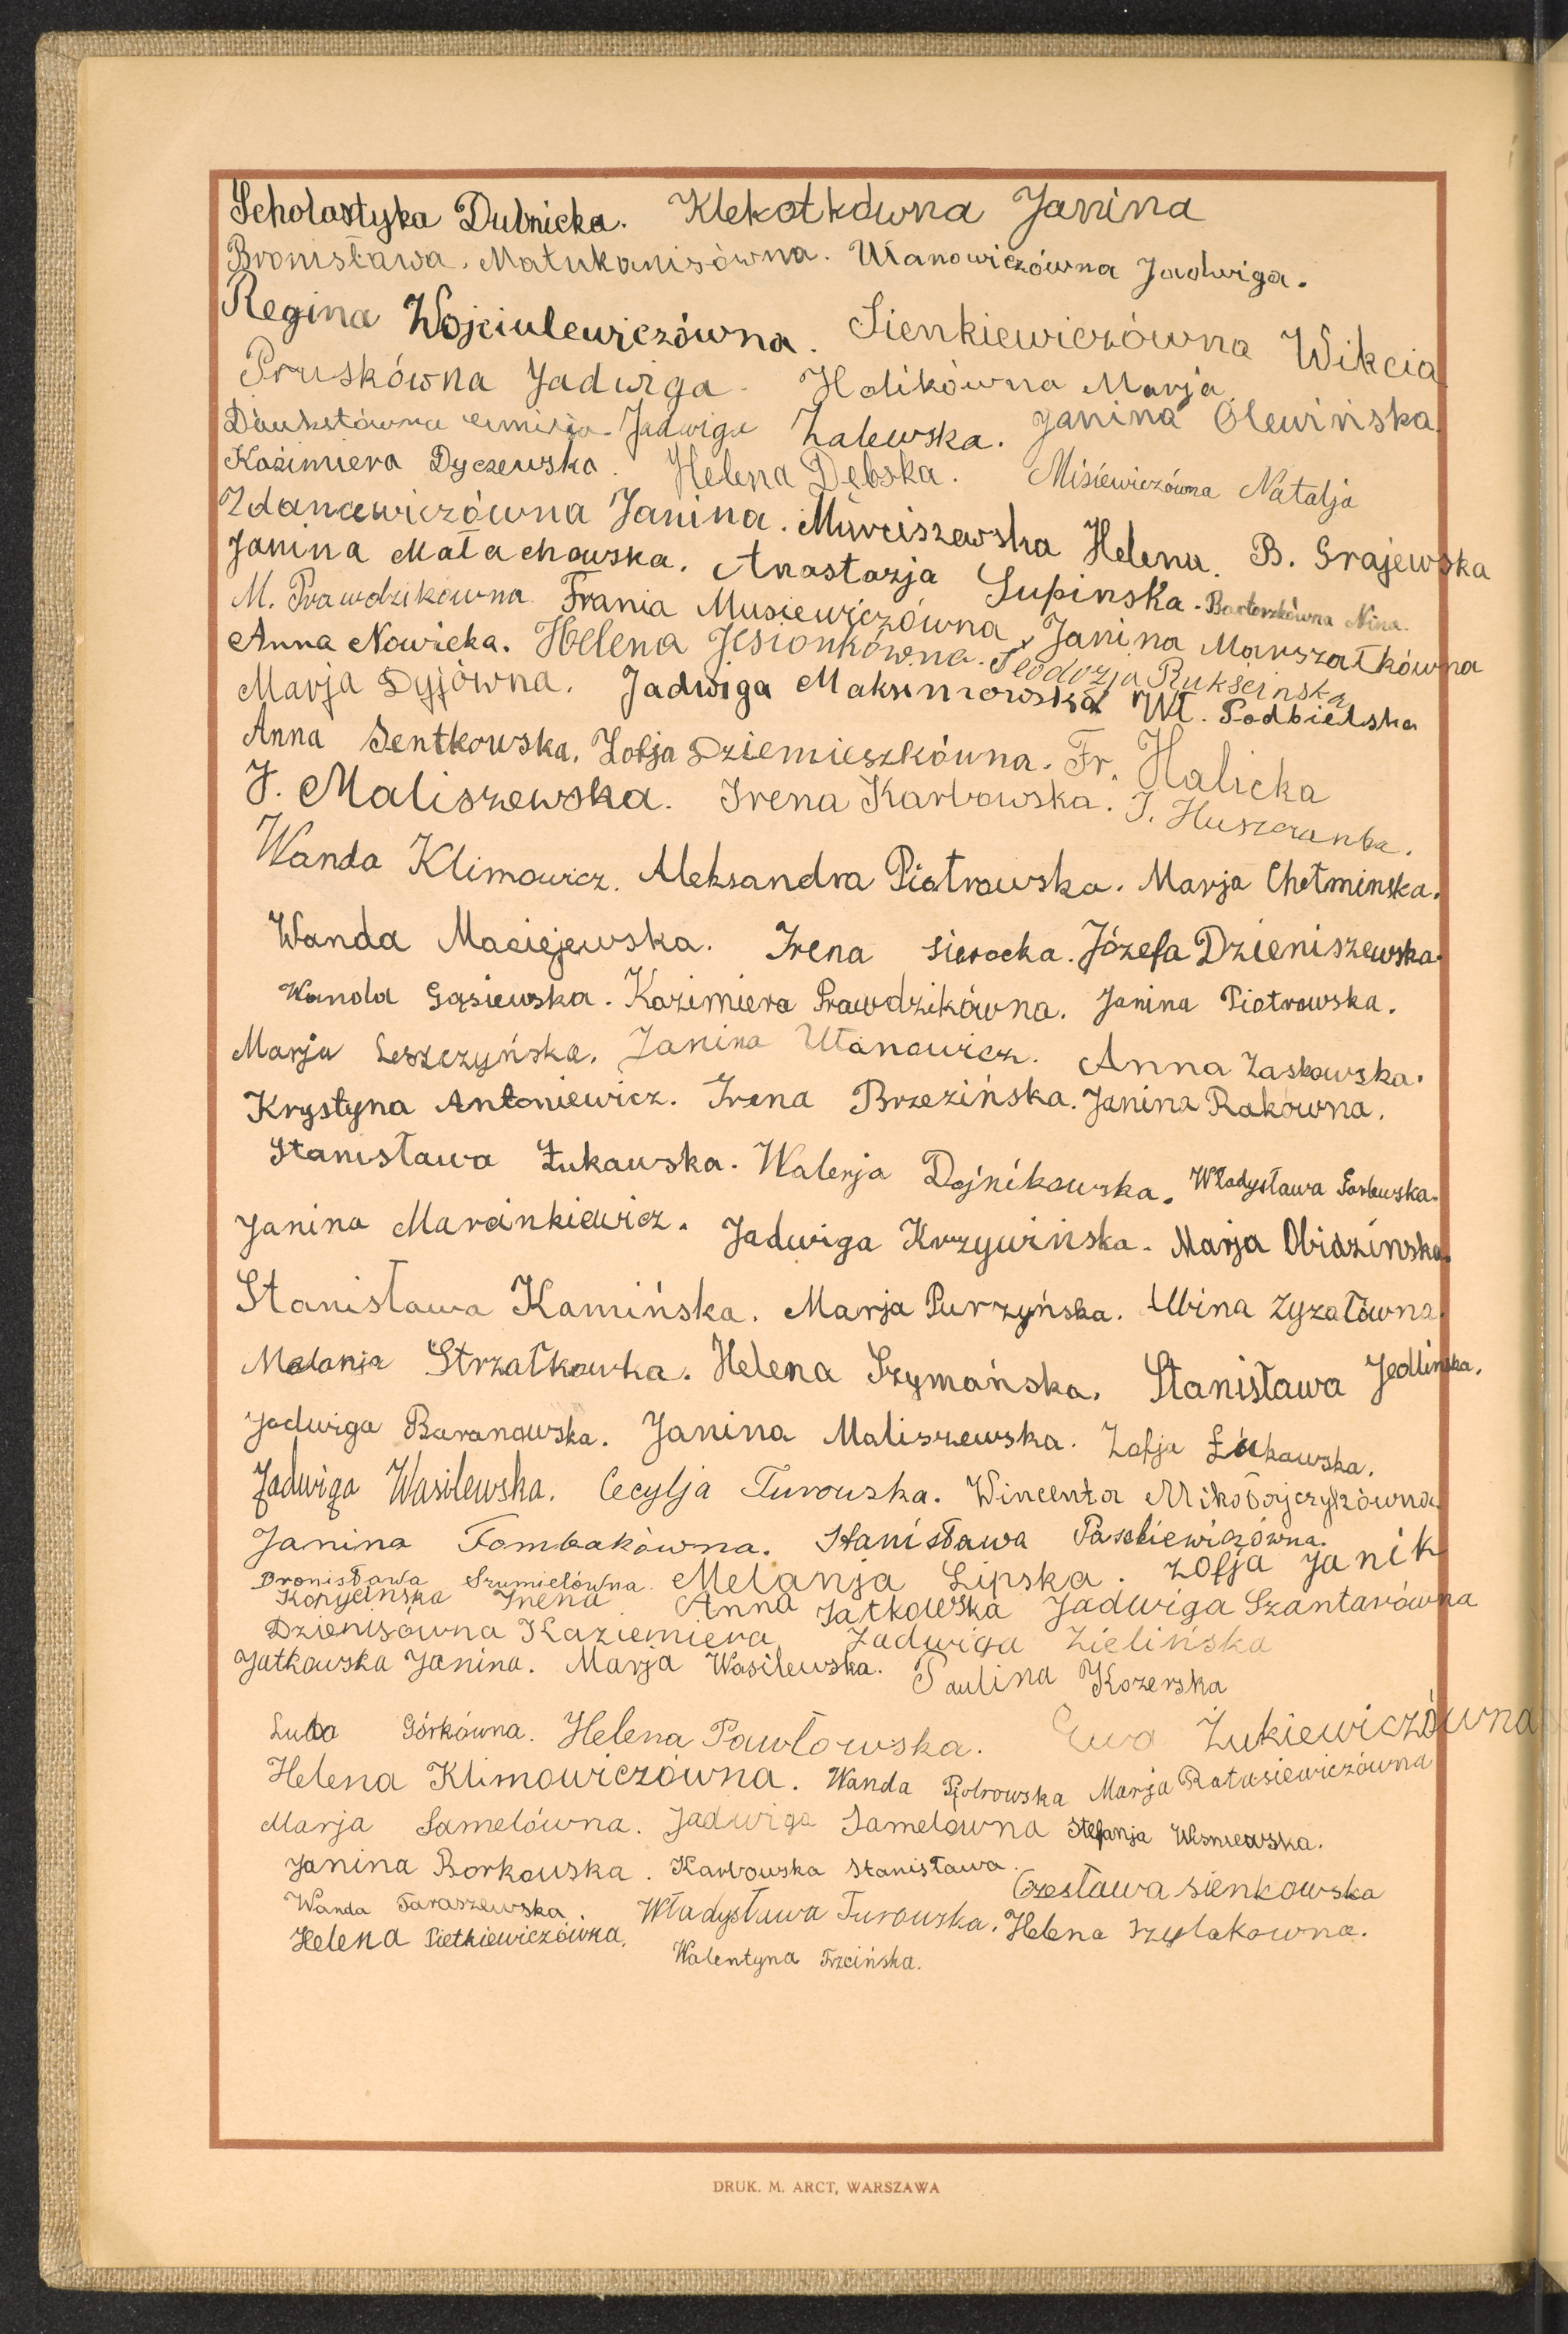 Scholastyka Dubnicka. Klekotkówna Janina
Bronisława. Matukanisówna. Ułanowiczówna Jadwiga.
Regina Wojciulewiczówna. Sienkiewiczówna Wikcia
Pruskówna Jadwiga. Halikówna Marja
Jadwiga Zalewska. Janina Olewińska
Kazimiera Dyczewska. Helena Dębska. Misiewiczówna Natalja
Zdancewiczówna Janina. Murciszewska Helena. B. Grajewska
Janina Małachowska. Anastazja Łupinska. Bartoszkówna Nina.
M. Prawdzikówna. Frania Musiewiczówna, Janina Marszałkówna
Anna Nowicka. Helena Jesionkówna. Teodozja Rukścinska
Marja Dyjówna. Jadwiga Maksimowska Wł. Podbielska
Anna Sentkowska. Zofja Dziemieszkówna. Fr. Halicka
J. Maliszewska. Irena Karbowska. J. Huszczanka.
Wanda Klimowicz. Aleksandra Piotrowska. Marja Chełminska.
Wanda Maciejewska. Irena Sierocka. Józefa Dzieniszewska.
Wanda Gąsiewska. Kazimiera Prawdzikówna. Janina Piotrowska.
Marja Leszczyńska. Janina Ułanowicz. Anna Zaskowska.
Krystyna Antoniewicz. Irena Brzezińska. Janina Rakówna.
Stanisława Żukawska. Walerja Dojnikowska. Władysława
Janina Marcinkiewicz. Jadwiga Krzywińska. Marja Obidzínska.
Stanisława Kamińska. Marja Purzyńska. Albina Zyzałówna.
Melanja Strzałkowka. Helena Szymańska. Stanisława Jedlinska.
Jadwiga Baranowska. Janina Maliszewska. Zofja Łukawska.
Jadwiga Wasilewska. Cecylja Turowska. Wincenta Mikołajczykówna.
Janina Tombakówna. Stanisława Paszkiewiczówna.
Bronisława Szumielówna. Melanja Lipska. Zofja Janik
Korycinska Irena. Anna Jatkowska Jadwiga Szantarówna
Dzienisówna Kaziemiera Jadwiga Zielińska
Jatkowska Janina. Marja Wasilewska. Paulina Kozerska
Luba Górkówna. Helena Pawłowska. Ewa Żukiewiczówna
Helena Klimowiczówna. Wanda Piotrowska Marja Ratasiewiczówna
Marja Samelówna. Jadwiga Samelówna Stefanja Wisniewska.
Janina Borkowska. Karbowska Stanisława. Czesława Sienkowska
Wanda Taraszewska. Władysława Turowska. Helena Szylakowna.
Helena Pietkiewiczówna. Walentyna Trzcińska.
DRUK. M. ARCT, WARSZAWA